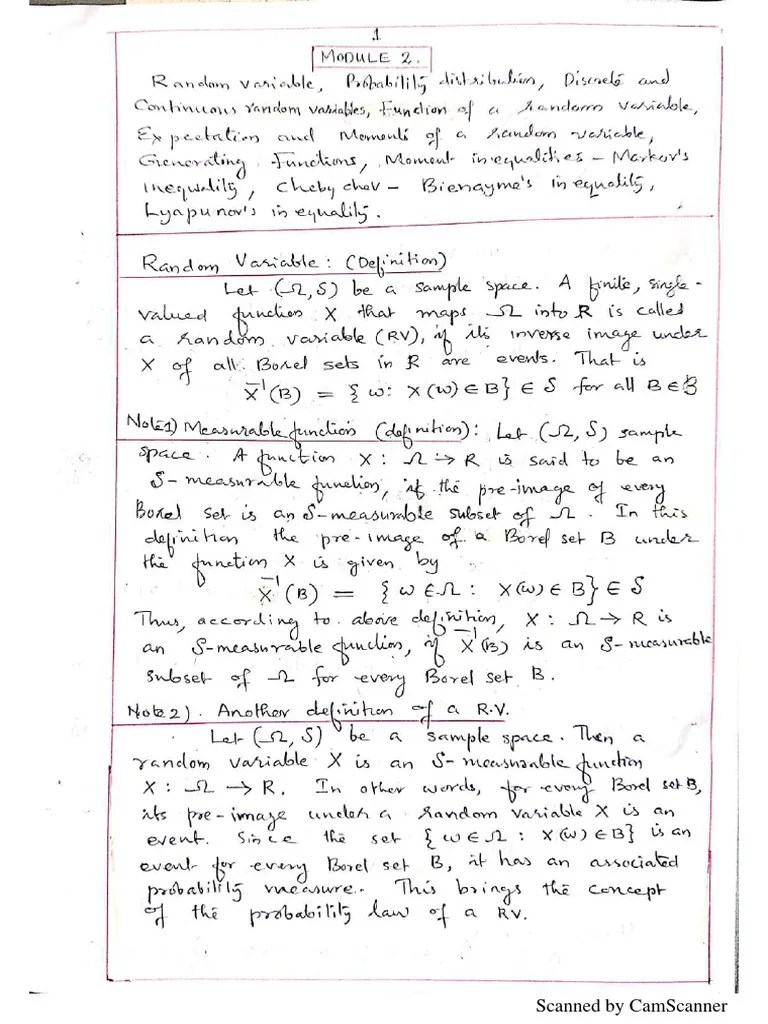 1
MODULE 2.
Random variable, Probability distribution, Discrete and
Continuous random variables, Function of a random variable,
Expectation and Moments of a random variable,
Generating Functions, Moment inequalities - Markov's
Inequality, Chebychev - Bienayme's inequality,
Lyapunov's inequality.
Random Variable: (Definition)
Let (Ω, S) be a sample space. A finite, single-
valued function X that maps Ω into R is called
a random variable (RV), if its inverse image under
X of all Borel sets in R are events. That is
X⁻¹(B) = { ω: X(ω) ∈ B} ∈ S for all B ∈ 𝔅
Note1) Measurable function (definition): Let (Ω, S) sample
space. A function X: Ω → R is said to be an
S-measurable function, if the pre-image of every
Borel set is an S-measurable subset of Ω. In this
definition the pre-image of a Borel set B under
the function X is given by
X⁻¹(B) = { ω ∈ Ω : X(ω) ∈ B} ∈ S
Thus, according to above definition, X: Ω → R is
an S-measurable function, if X⁻¹(B) is an S-measurable
subset of Ω for every Borel set B.
Note2). Another definition of a R.V.
Let (Ω, S) be a sample space. Then a
random variable X is an S-measurable function
X: Ω → R. In other words, for every Borel set B,
its pre-image under a random variable X is an
event. Since the set { ω ∈ Ω : X(ω) ∈ B} is an
event for every Borel set B, it has an associated
probability measure. This brings the concept
of the probability law of a RV.
Scanned by CamScanner